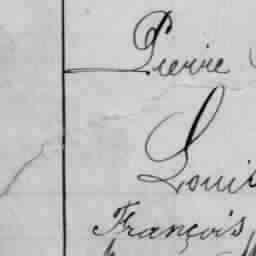 Pierre
Louis
François